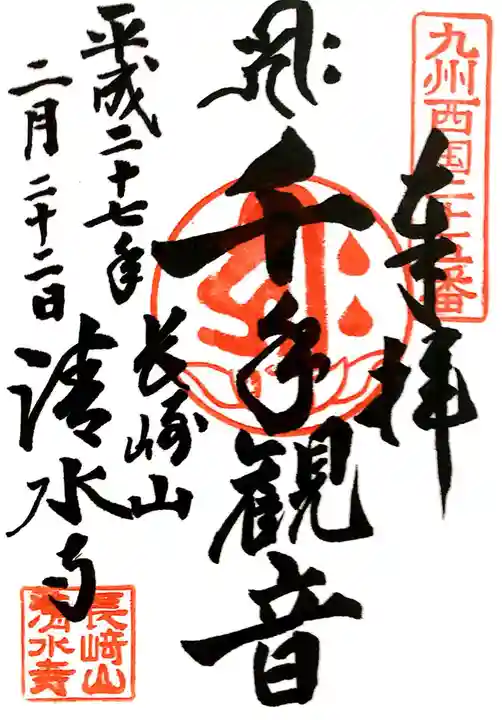 九州西国二十五番
奉拝
千手観音
平成二十七年
二月二十二日
長崎山
清水寺
長崎山
清水寺